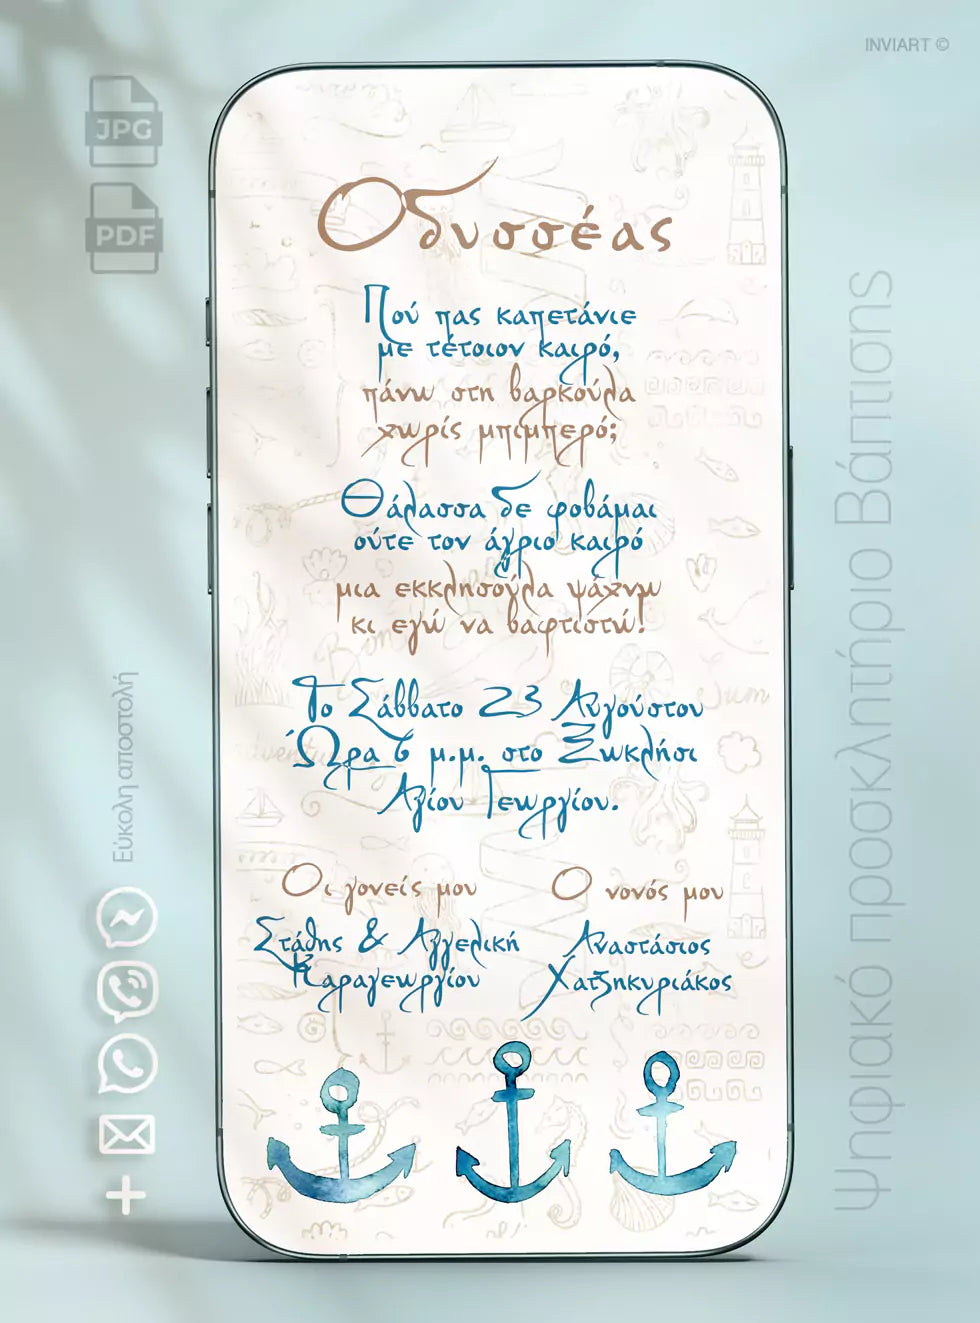 INVIART ©
JPG
PDF
Οδυσσέας
Πού πας καπετάνιε
με τέτοιον καιρό,
πάνω στη βαρκούλα
χωρίς μπιμπερό;
Θάλασσα δε φοβάμαι
ούτε τον άγριο καιρό
μια εκκλησούλα ψάχνω
κι εγώ να βαφτιστώ!
Το Σάββατο 23 Αυγούστου
Ώρα 6 μ.μ. στο Ξωκλήσι
Αγίου Γεωργίου.
Οι γονείς μου
Στάθης & Αγγελική
Καραγεωργίου
Ο νονός μου
Αναστάσιος
Χατζηκυριάκος
Εύκολη αποστολή
Ψηφιακό προσκλητήριο Βάπτισης